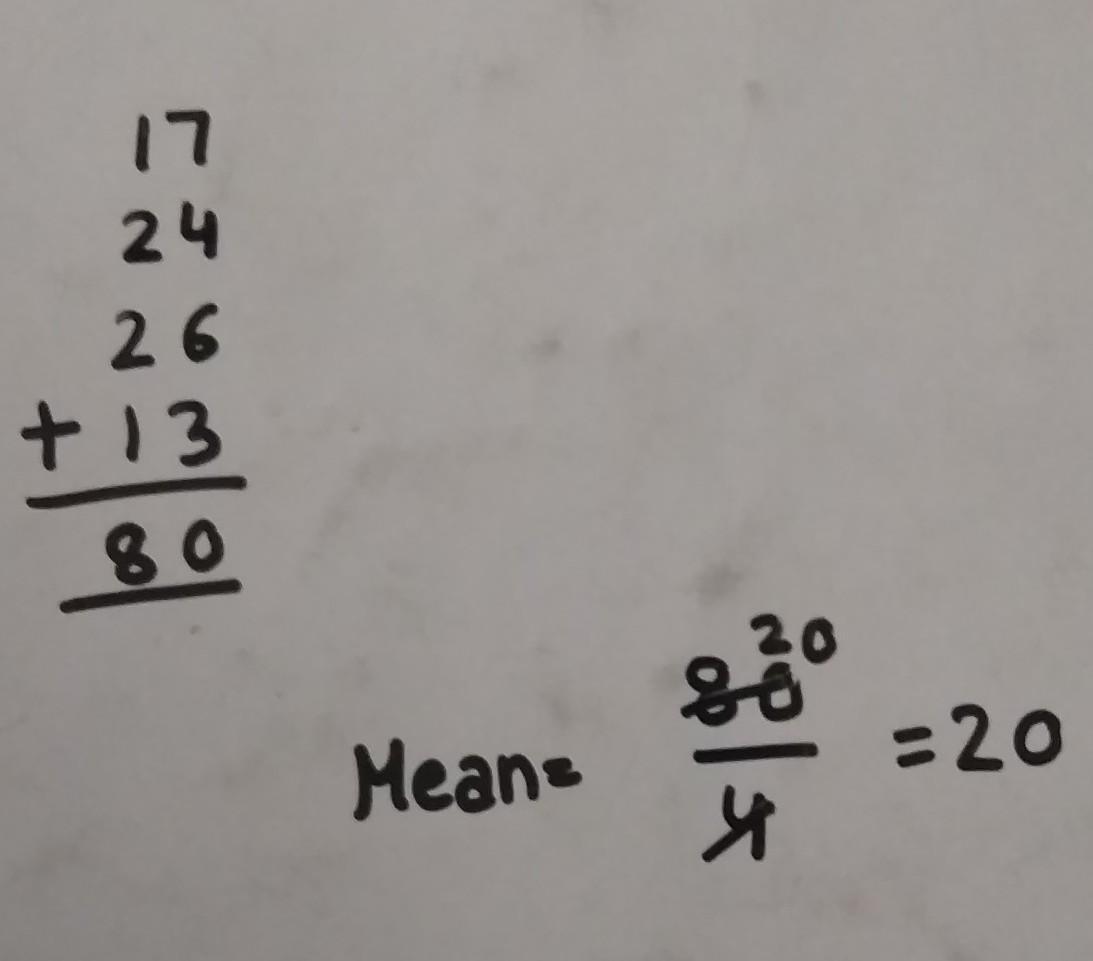 17
24
26
+ 13
80
20
Mean= 80/4 =20